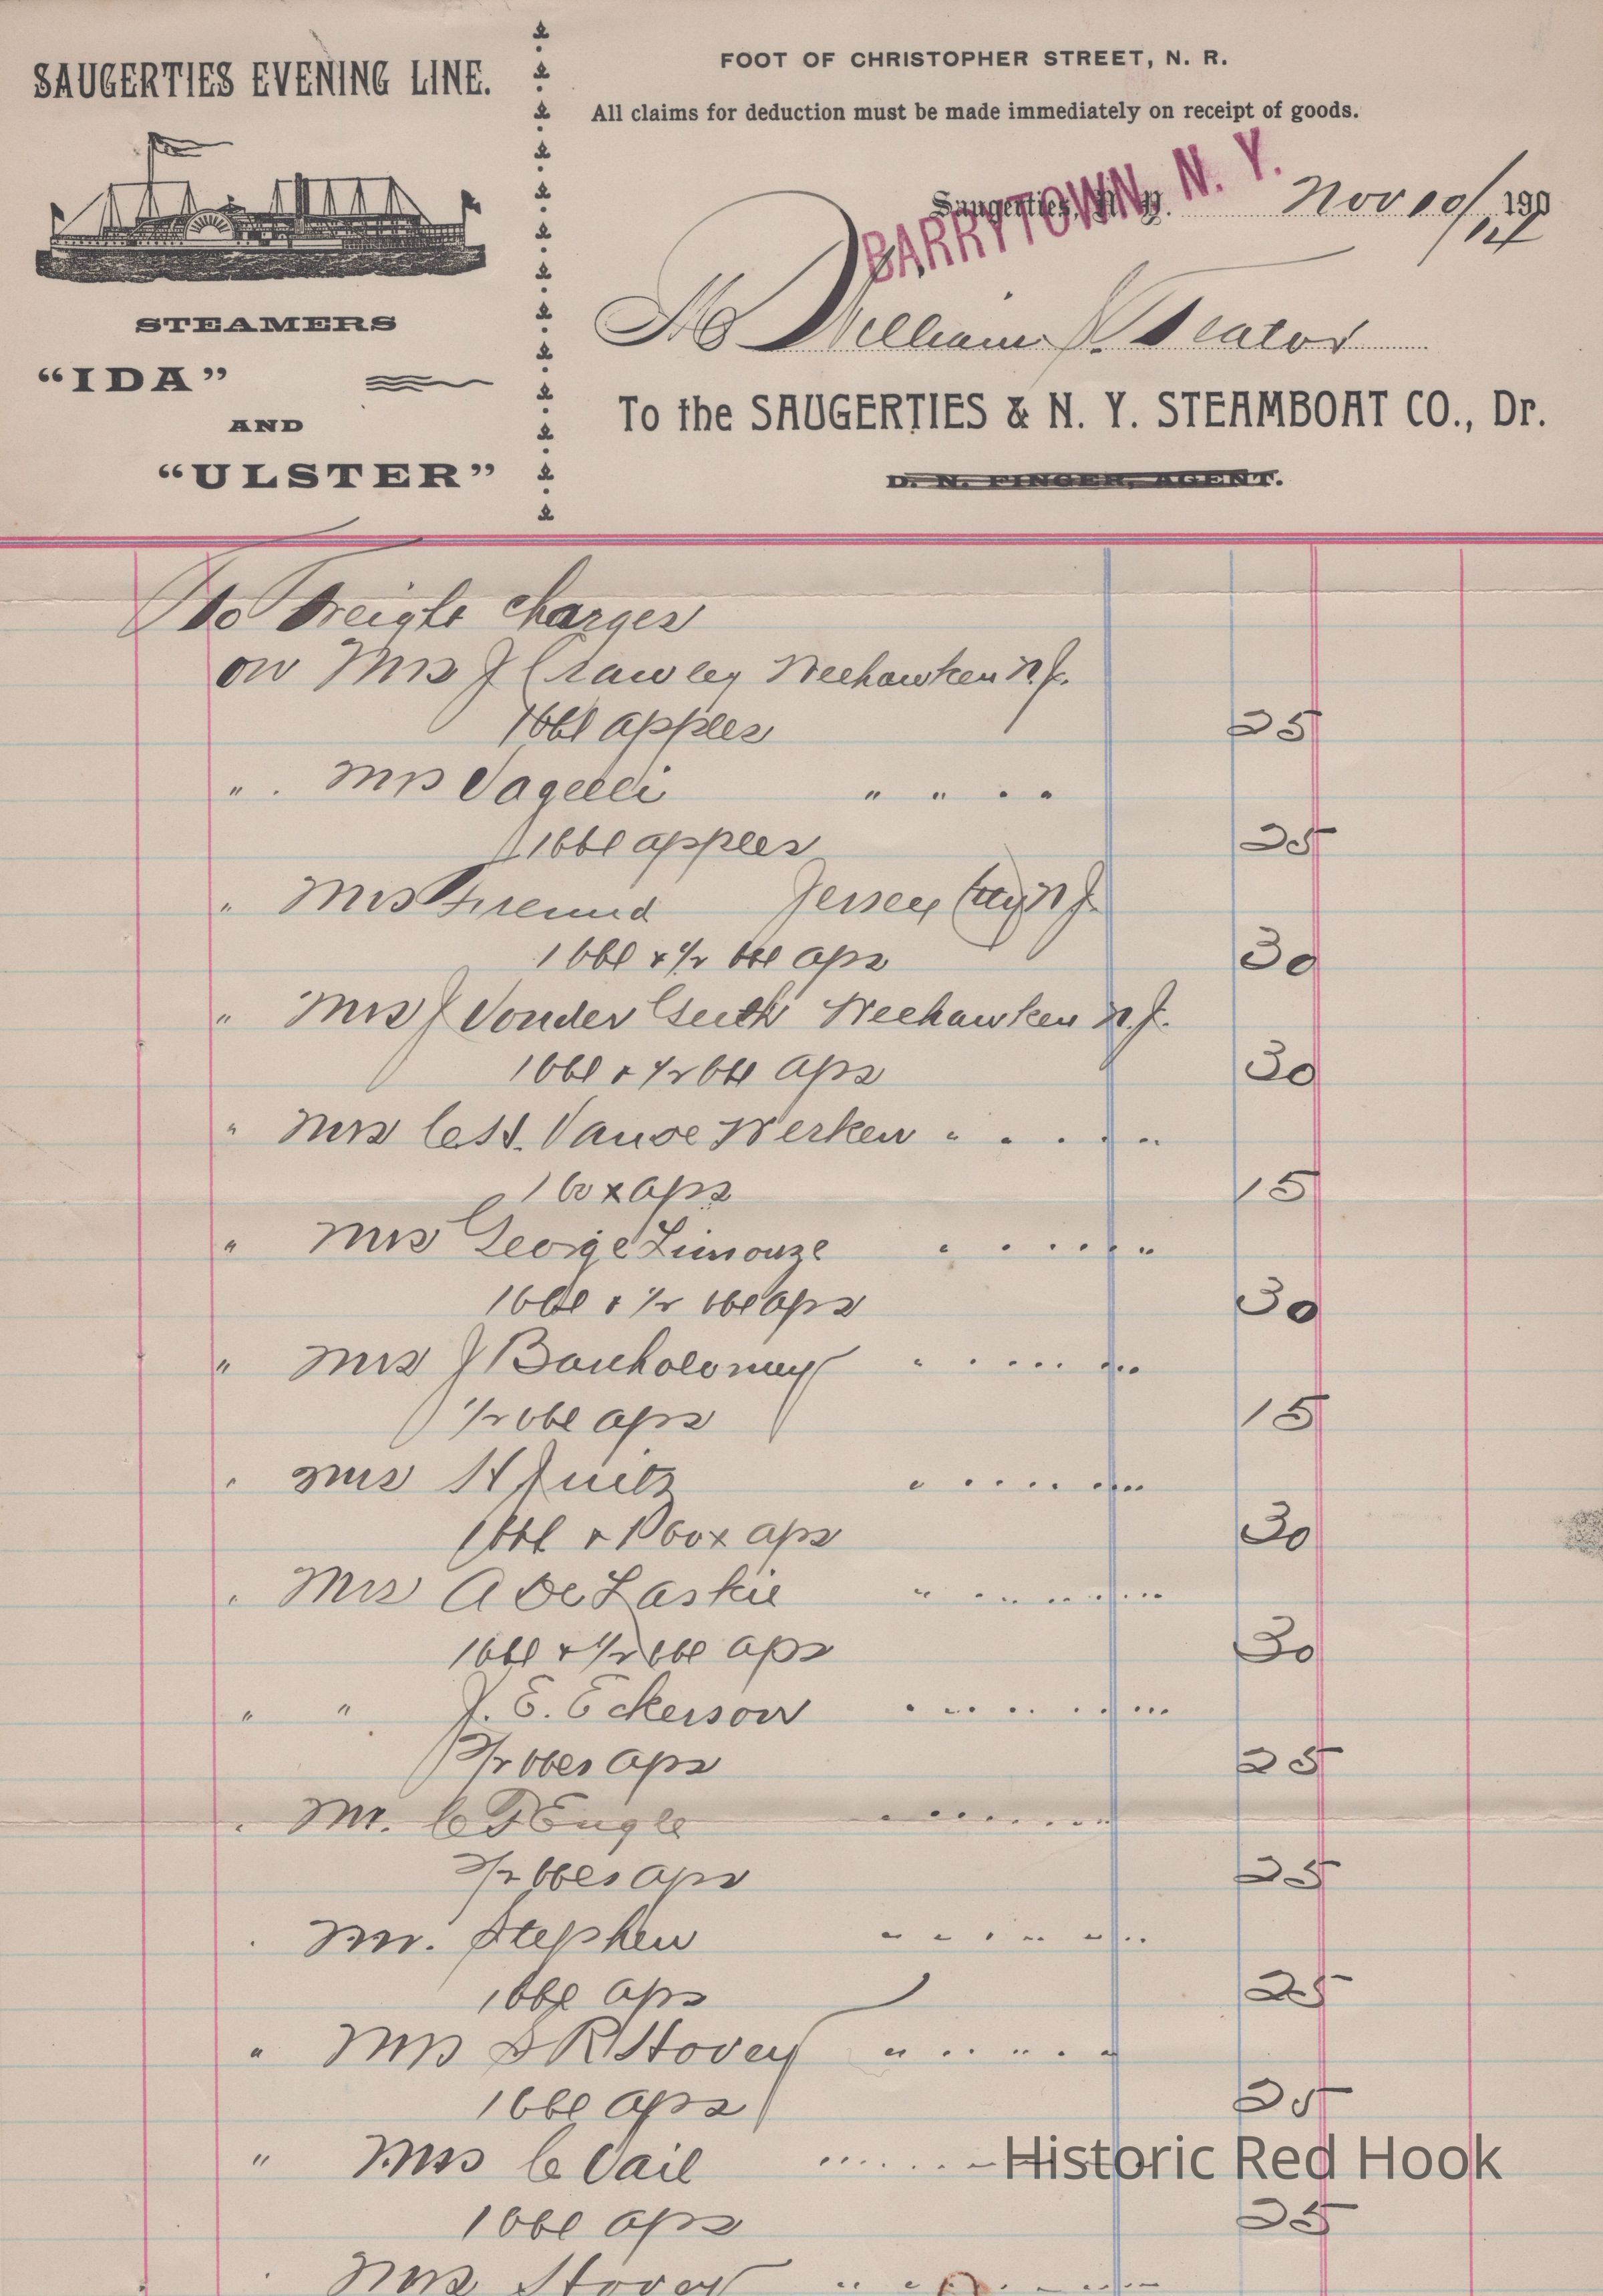 SAUGERTIES EVENING LINE.
STEAMERS
"IDA"
AND
"ULSTER"
FOOT OF CHRISTOPHER STREET, N. R.
All claims for deduction must be made immediately on receipt of goods.
Saugerties, N. Y. Nov 10/14 190
BARRYTOWN, N. Y.
M William J. Teator
To the SAUGERTIES & N. Y. STEAMBOAT CO., Dr.
D. N. FINGER, AGENT.
To Freight charges
on Mrs J Crawley Weehawken N.J.
1 bbl apples 25
" . Mrs Vagelli " " . .
1 bbl apples 25
" Mrs Freund Jersey City N.J.
1 bbl & 1/2 bbl aps 30
" Mrs J Vonder Weehawken N.J.
1 bbl & 1/2 bbl aps 30
" Mrs C.H. Vande Werken " . . . "
1 box aps 15
" Mrs George Limouze " . . . . "
1 bbl & 1/2 bbl aps 30
" Mrs J Bartholomey " . . . . . . .
1/2 bbl aps 15
" Mrs H " . . . . . . .
1 bbl & 1 box aps 30
" Mrs A De Laskie " . . . . . . . .
1 bbl & 1/2 bbl aps 30
" " J. E. Eckerson . . . . . . . . .
2/2 bbls aps 25
" Mr. C F Engle " . . . . . . .
2/2 bbls aps 25
. Mr. Stephen " " . " " . .
1 bbl aps 25
" Mrs S R Hovey " . . " . "
1 bbl aps 25
" Mrs C Vail " . . . . .
1 bbl aps 25
. Mrs Hovey " " . . "
Historic Red Hook